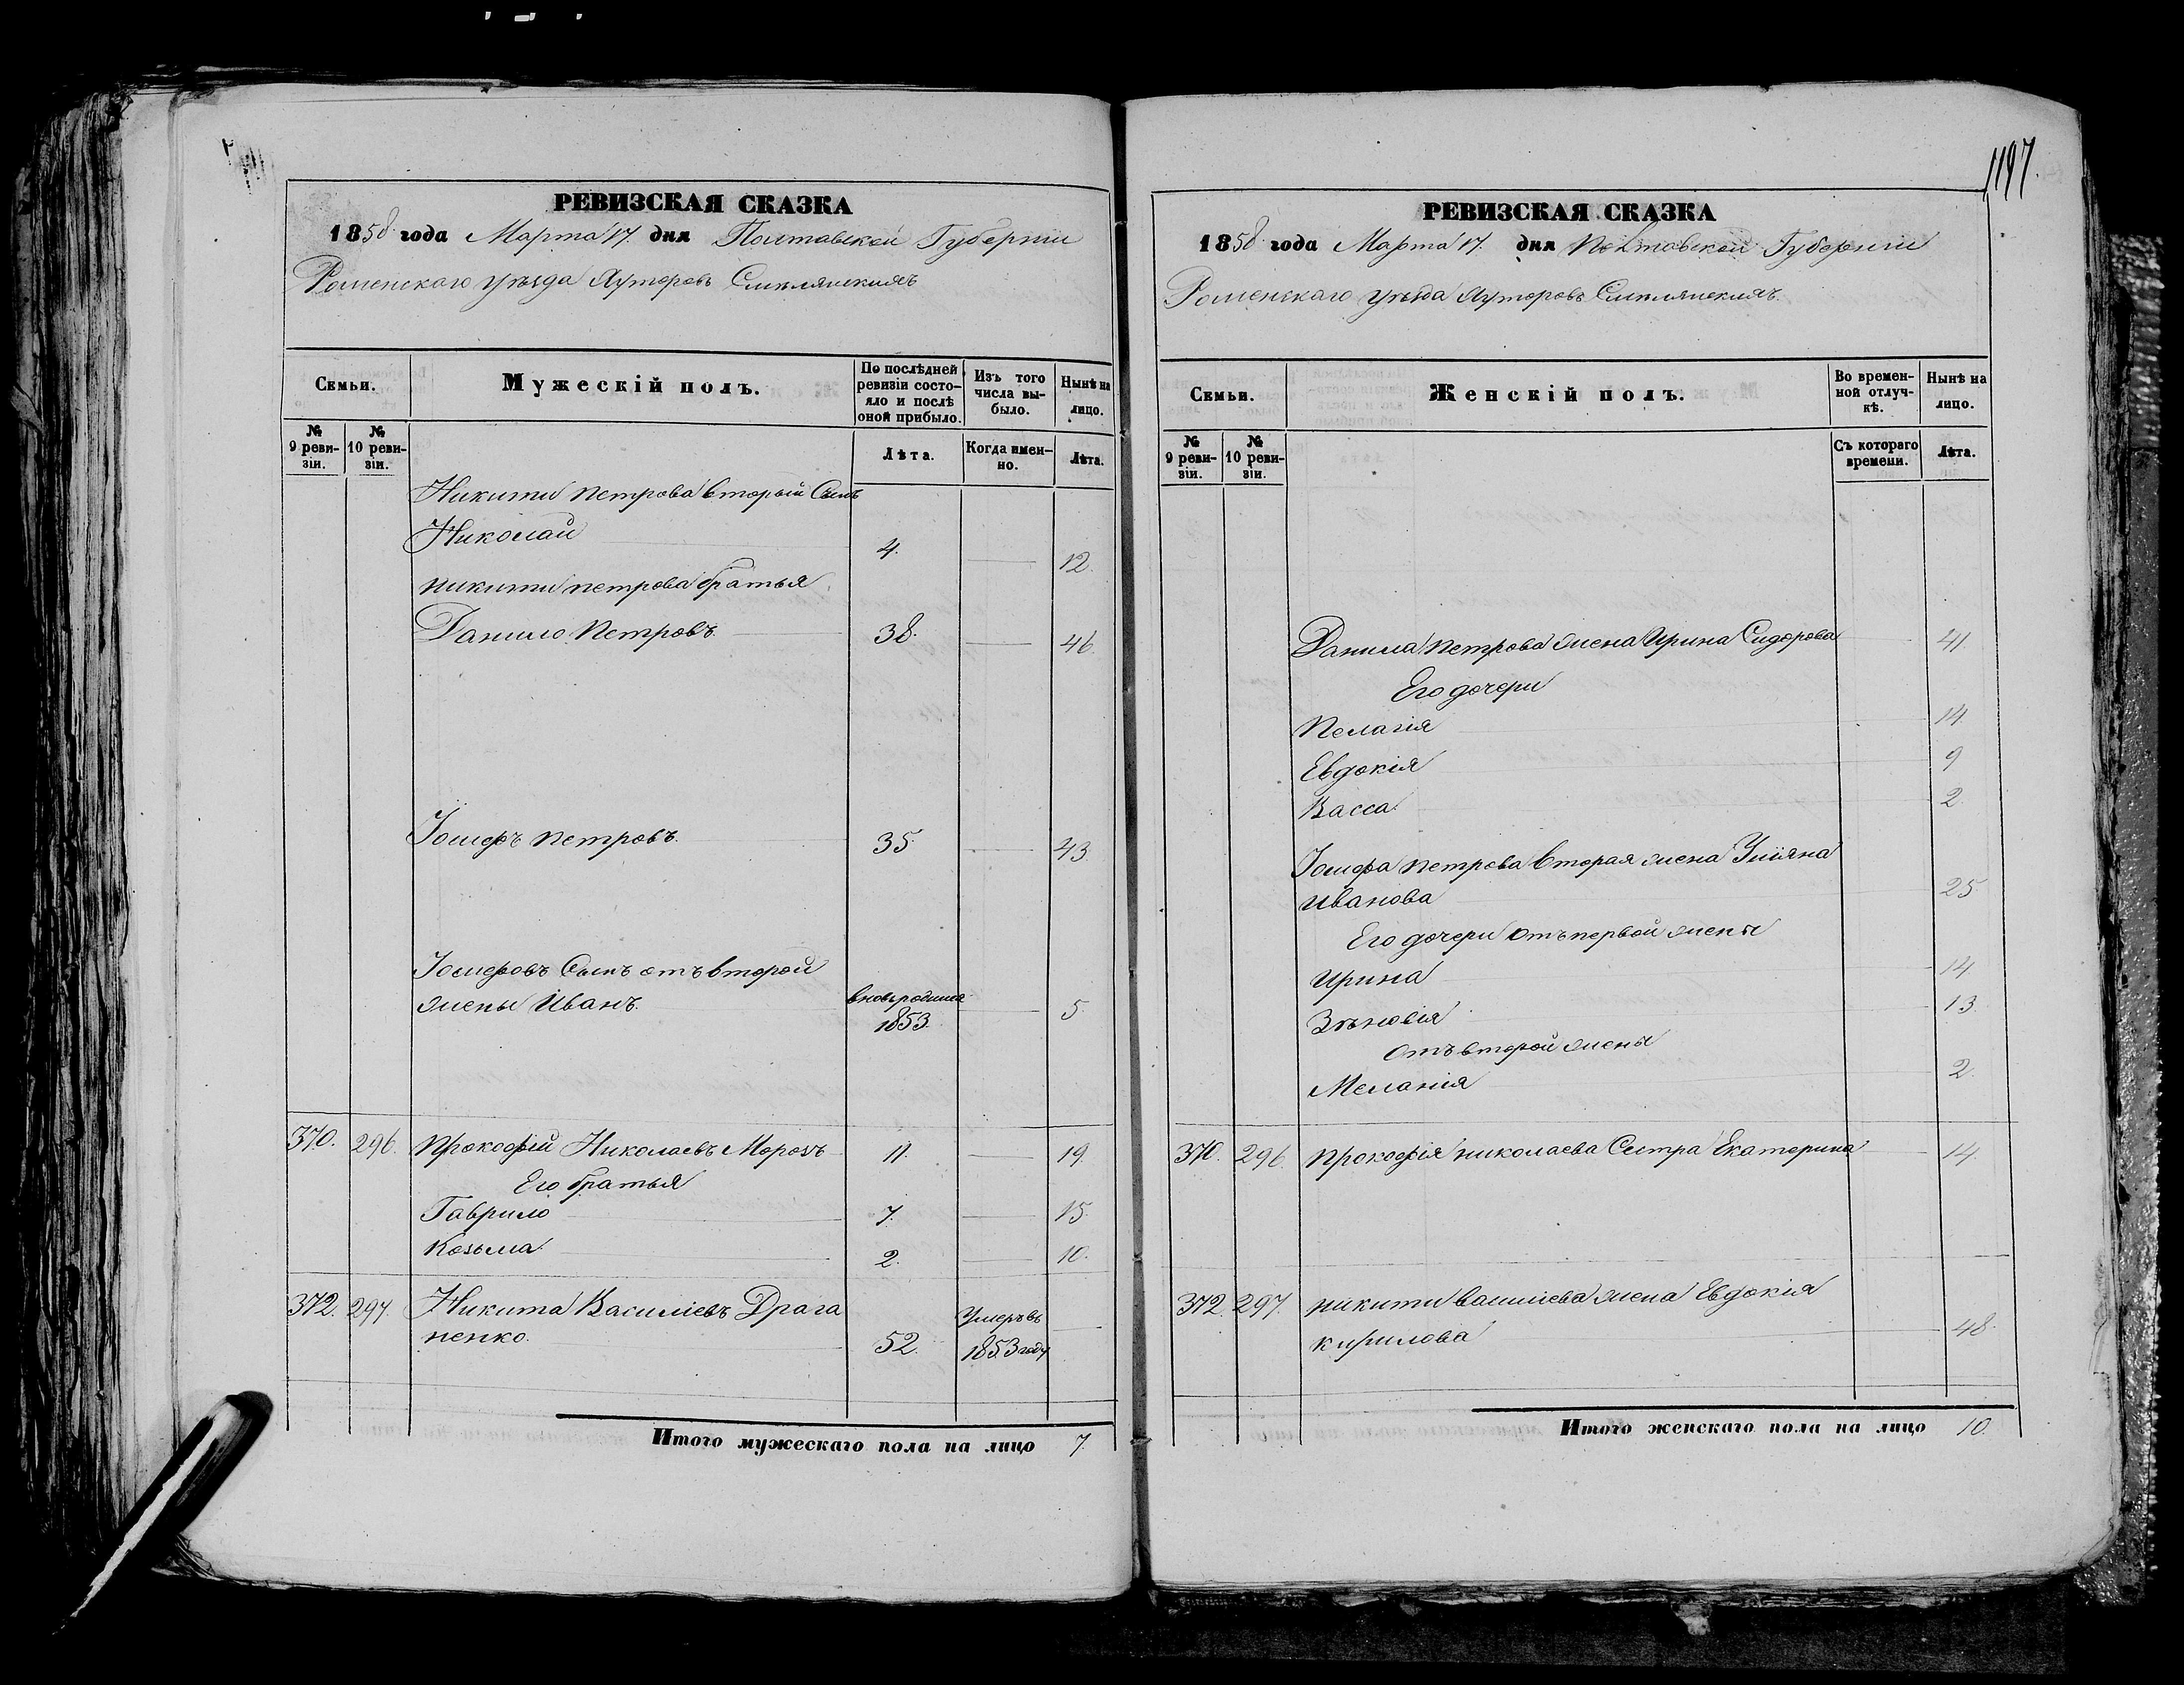 1197.
РЕВИЗСКАЯ СКАЗКА
1858 года Марта 17. дня Полтавской Губерніи
Роменскаго уѣзда Хуторовъ Смѣлянскихъ
Семьи. Мужескій полъ. По послѣдней ревизіи состояло и послѣ оной прибыло. Изъ того числа выбыло. Нынѣ на лицо.
№ 9 ревизіи. № 10 ревизіи. Лѣта. Когда именно. Лѣта.
Никиты Петрова вторый Сынъ
Николай 4. 12.
Никиты Петрова братья
Данило Петровъ 38. 46.
Іосифъ Петровъ. 35. 43
Іосифовъ Сынъ отъ второй
жены Иванъ. вновьродился 1853. 5.
370. 296. Прокофій Николаевъ Морозъ 11. 19.
Его братья
Гаврило 7. 15.
Козьма 2. 10.
372. 297. Никита Василіевъ Драга
ненко. 52. Умеръ въ 1853 году
Итого мужескаго пола на лицо 7.
РЕВИЗСКАЯ СКАЗКА
1858 года Марта 17. дня Полтавской Губерніи
Роменскаго уѣзда Хуторовъ Смѣлянскихъ.
Семьи. Женскій полъ. Во временной отлучкѣ. Нынѣ на лицо.
№ 9 ревизіи. № 10 ревизіи. Съ котораго времени. Лѣта.
Данила Петрова жена Ирина Сидорова 41.
Его дочери
Пелагія 14.
Евдокія 9
Васса 2
Іосифа Петрова вторая жена Уліяна
Иванова 25
Его дочери отъ первой жены
Ирина 14
Зѣновія 13.
Отъ второй жены
Меланія 2.
370. 296. Прокофія Николаева Сестра Екатерина 14.
372. 297. Никиты Василіева жена Евдокія
Кирилова 48.
Итого женскаго пола на лицо 10.